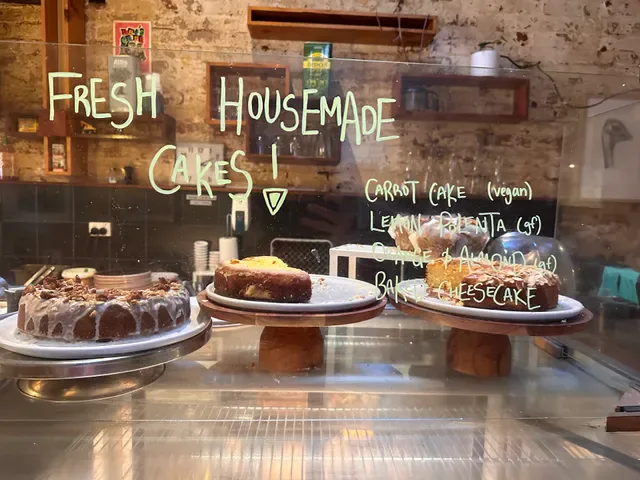 FRESH HOUSEMADE
CAKES!
CARROT CAKE (vegan)
LEMON POLENTA (gf)
ORANGE & ALMOND (gf)
BAKED CHEESECAKE